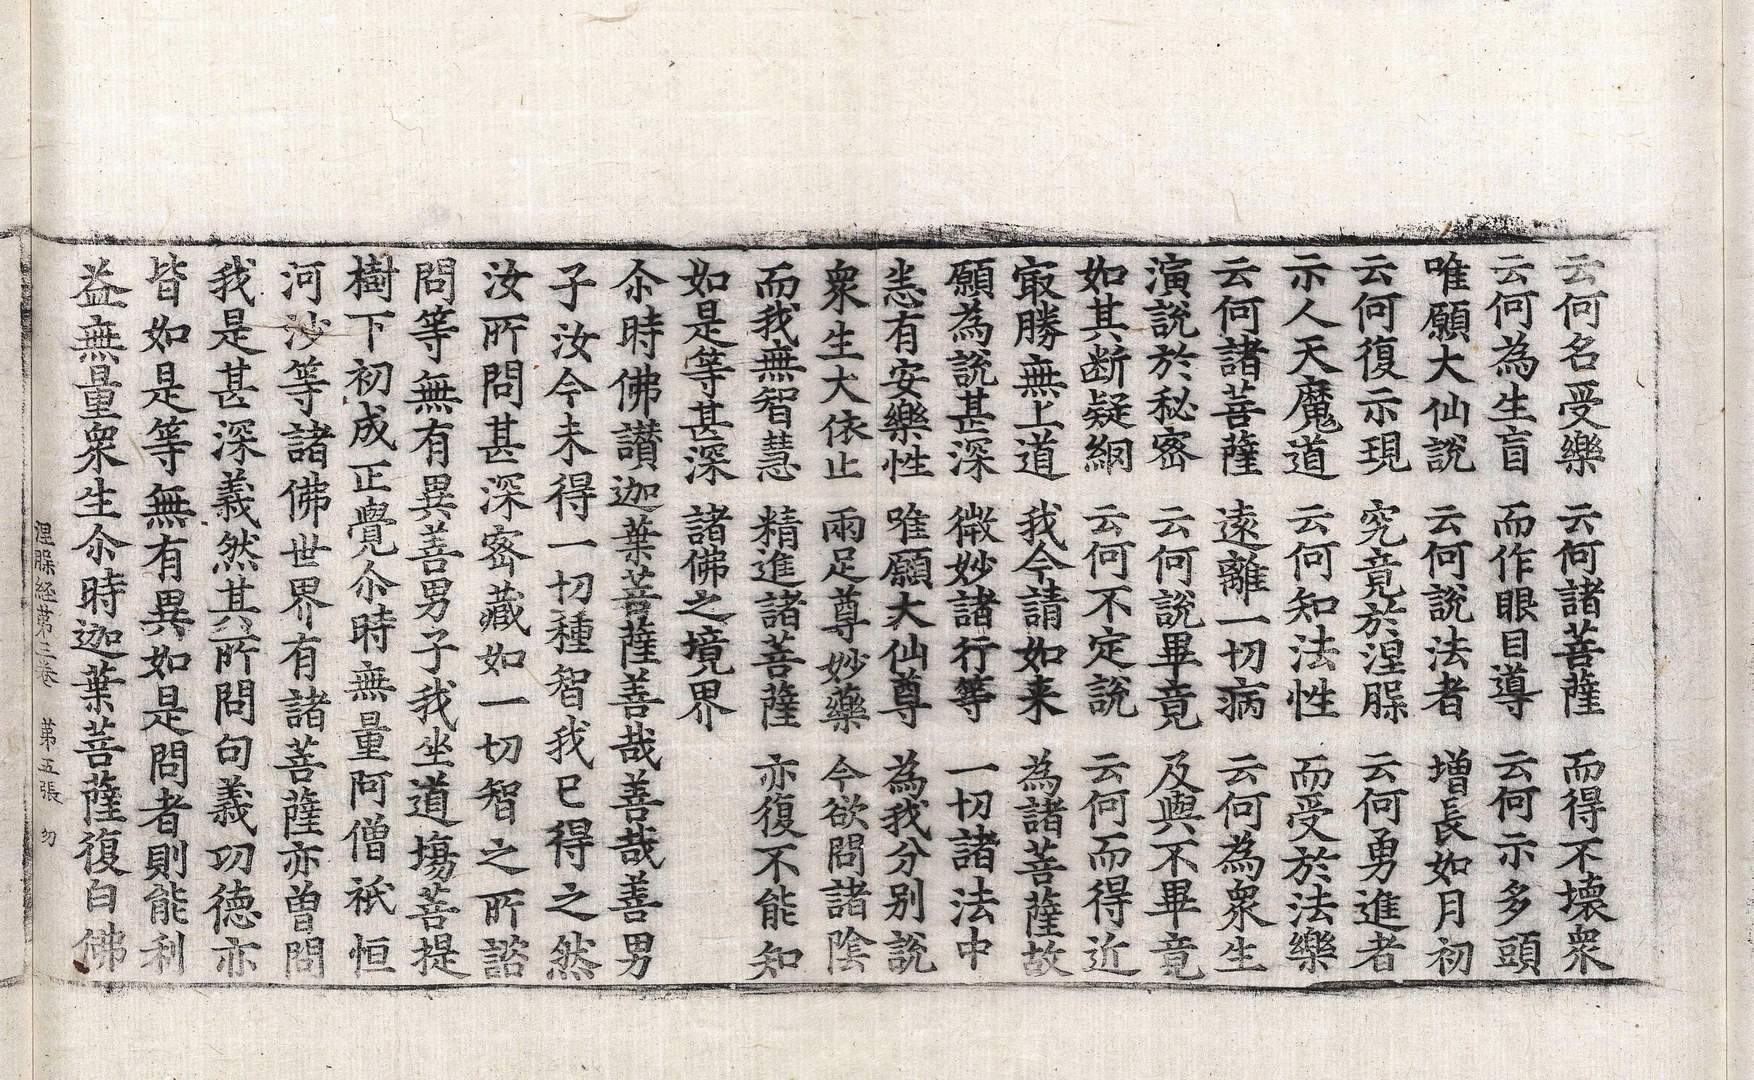 云何名受樂 云何諸菩薩 而得不壞衆
云何為生盲 而作眼目導 云何示多頭
唯願大仙說 云何說法者 增長如月初
云何復示現 究竟於涅槃 云何勇進者
示人天魔道 云何知法性 而受於法樂
云何諸菩薩 遠離一切病 云何為衆生
演說於秘密 云何說畢竟 及與不畢竟
如其断疑網 云何不定說 云何而得近
㝡勝無上道 我今請如来 為諸菩薩故
願為說甚深 微妙諸行等 一切諸法中
悉有安樂性 唯願大仙尊 為我分别說
衆生大依止 兩足尊妙藥 今欲問諸陰
而我無智慧 精進諸菩薩 亦復不能知
如是等甚深 諸佛之境界
尒時佛讃迦葉菩薩善哉善哉善男
子汝今未得一切種智我已得之然
汝所問甚深密藏如一切智之所諮
問等無有異善男子我坐道塲菩提
樹下初成正覺尒時無量阿僧祇恒
河沙等諸佛世界有諸菩薩亦曾問
我是甚深義然其所問句義功德亦
皆如是等無有異如是問者則能利
益無量衆生尒時迦葉菩薩復白佛
涅槃經第三卷 第五張 勿